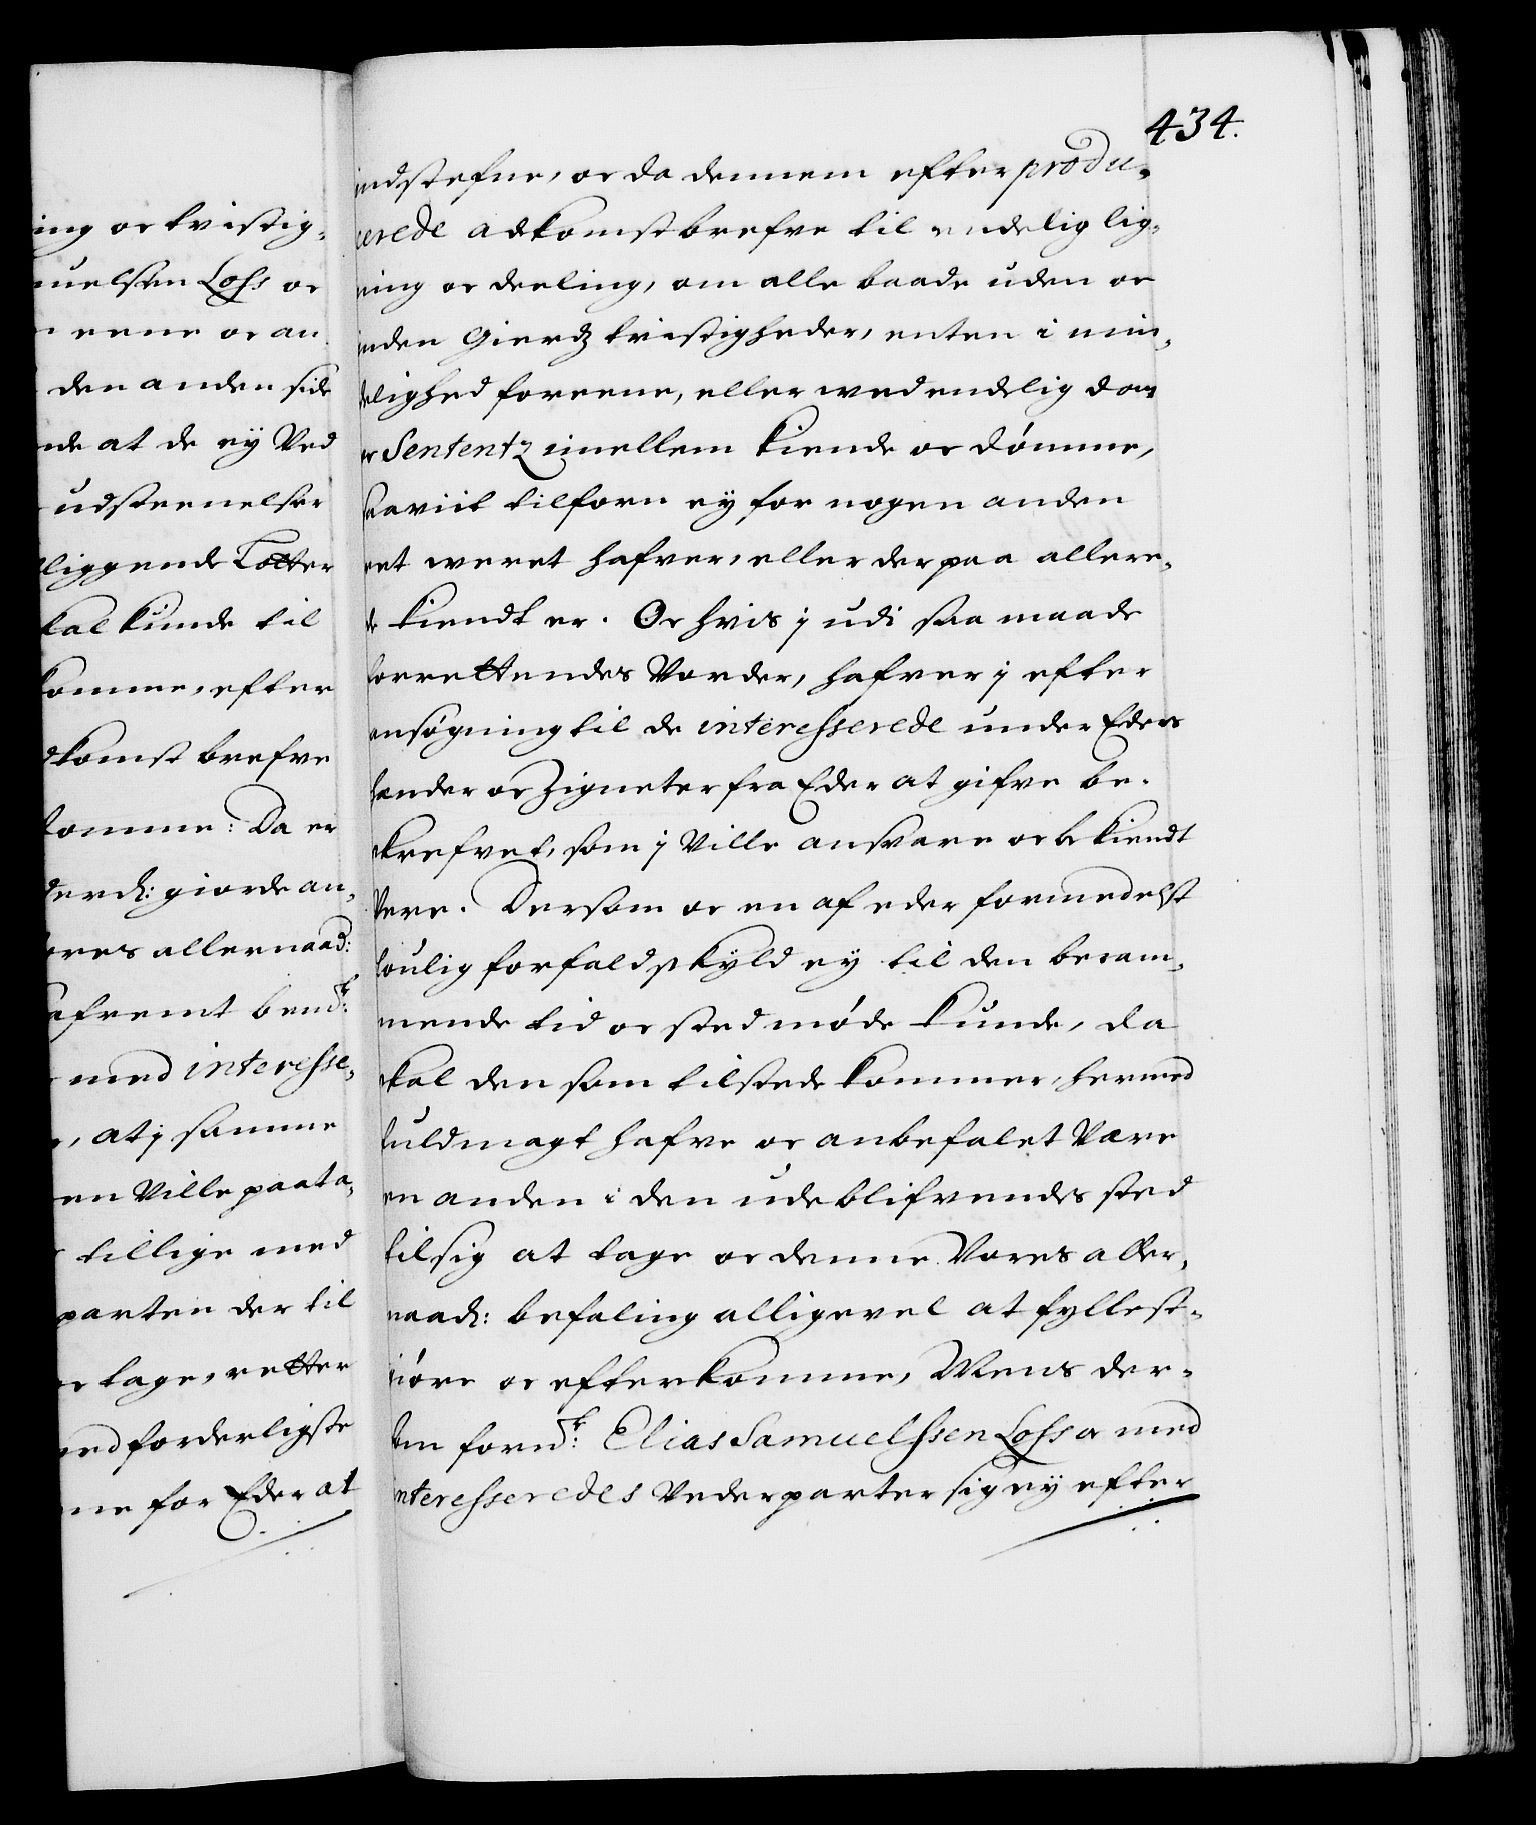 ing oc tvistig-
muelsen Loss oc
eene oc an
den anden side
nde at de ey Ved
udsteenelser
liggende Lotter
kal kunde til
komme, efter
dkomst brefve
komme: Da er
derd: giorde an-
ores allernaad:
afremt bend.te
med interesse-
, at j samme
en Ville paata-
tillige med
parten der til
tage, retter
med forderligste
ne for Eder at
434.
indstefne, oc da dennem efter produ-
cerede adkomstbrefve til endelig lig-
ning oc deeling, om alle baade uden oc
inden Gierdz tvistigheder, enten i min-
delighed foreene, eller wed endelig dom
oc Sententz imellem kiende oc dømme,
saaviit tilforn ey for nogen anden
ret weret hafver, eller der paa allere-
de kiendt er. Oc hvis j udi saa maade
forrettendes Vorder, hafver j efter
ansøgning til de interesserede under Eders
hænder oc Zigneter fra Eder at gifve be-
skrefvet, som j Ville ansvare oc bekiendt
Vere. Dersom oc en af eder formedelst
loulig forfalds skyld ey til den beram-
mende tid oc sted møde kunde, da
skal den som tilstede kommer, hermed
fuldmagt hafve oc anbefalet Være
en anden i den udeblifvendes sted
til sig at tage oc denne Vores aller-
naad: befaling alligevel at fyllest-
giøre oc efterkomme, Mens der-
som fornd.te Elias Samuelssen Loss oc med
interesseredes Vederparter sig ey efter